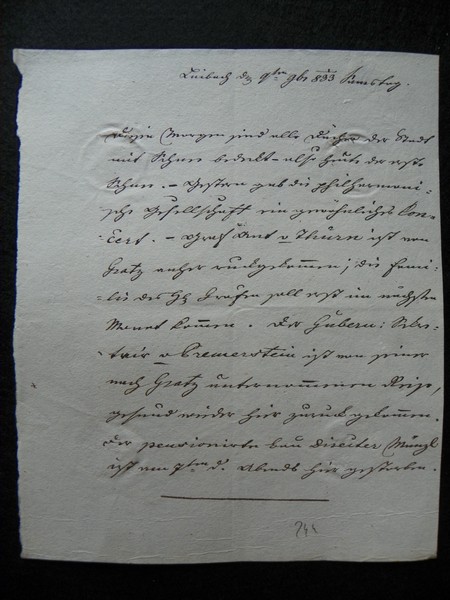 Laibach den 9ten 9br 833 Samstag.
Diesen Morgen sind alle Dächer der Stadt
mit Schnee bedeckt – also heute der erste
Schnee. – Gestern gab die philharmoni-
sche Gesellschaft ein gewöhnliches Con-
cert. – Graf Ant v Thurn ist von
Gratz anher rückgekommen; die Fami-
lie des H. Grafen soll erst im nächsten
Monat kommen. Der Gubern: Sekre-
tair v Premerstein ist von seiner
nach Gratz unternommenen Reise,
gesund wieder hier zurück gekommen.
Der pensionirte Bau Director Münzl
ist am 7ten d. Abends hier gestorben.
244